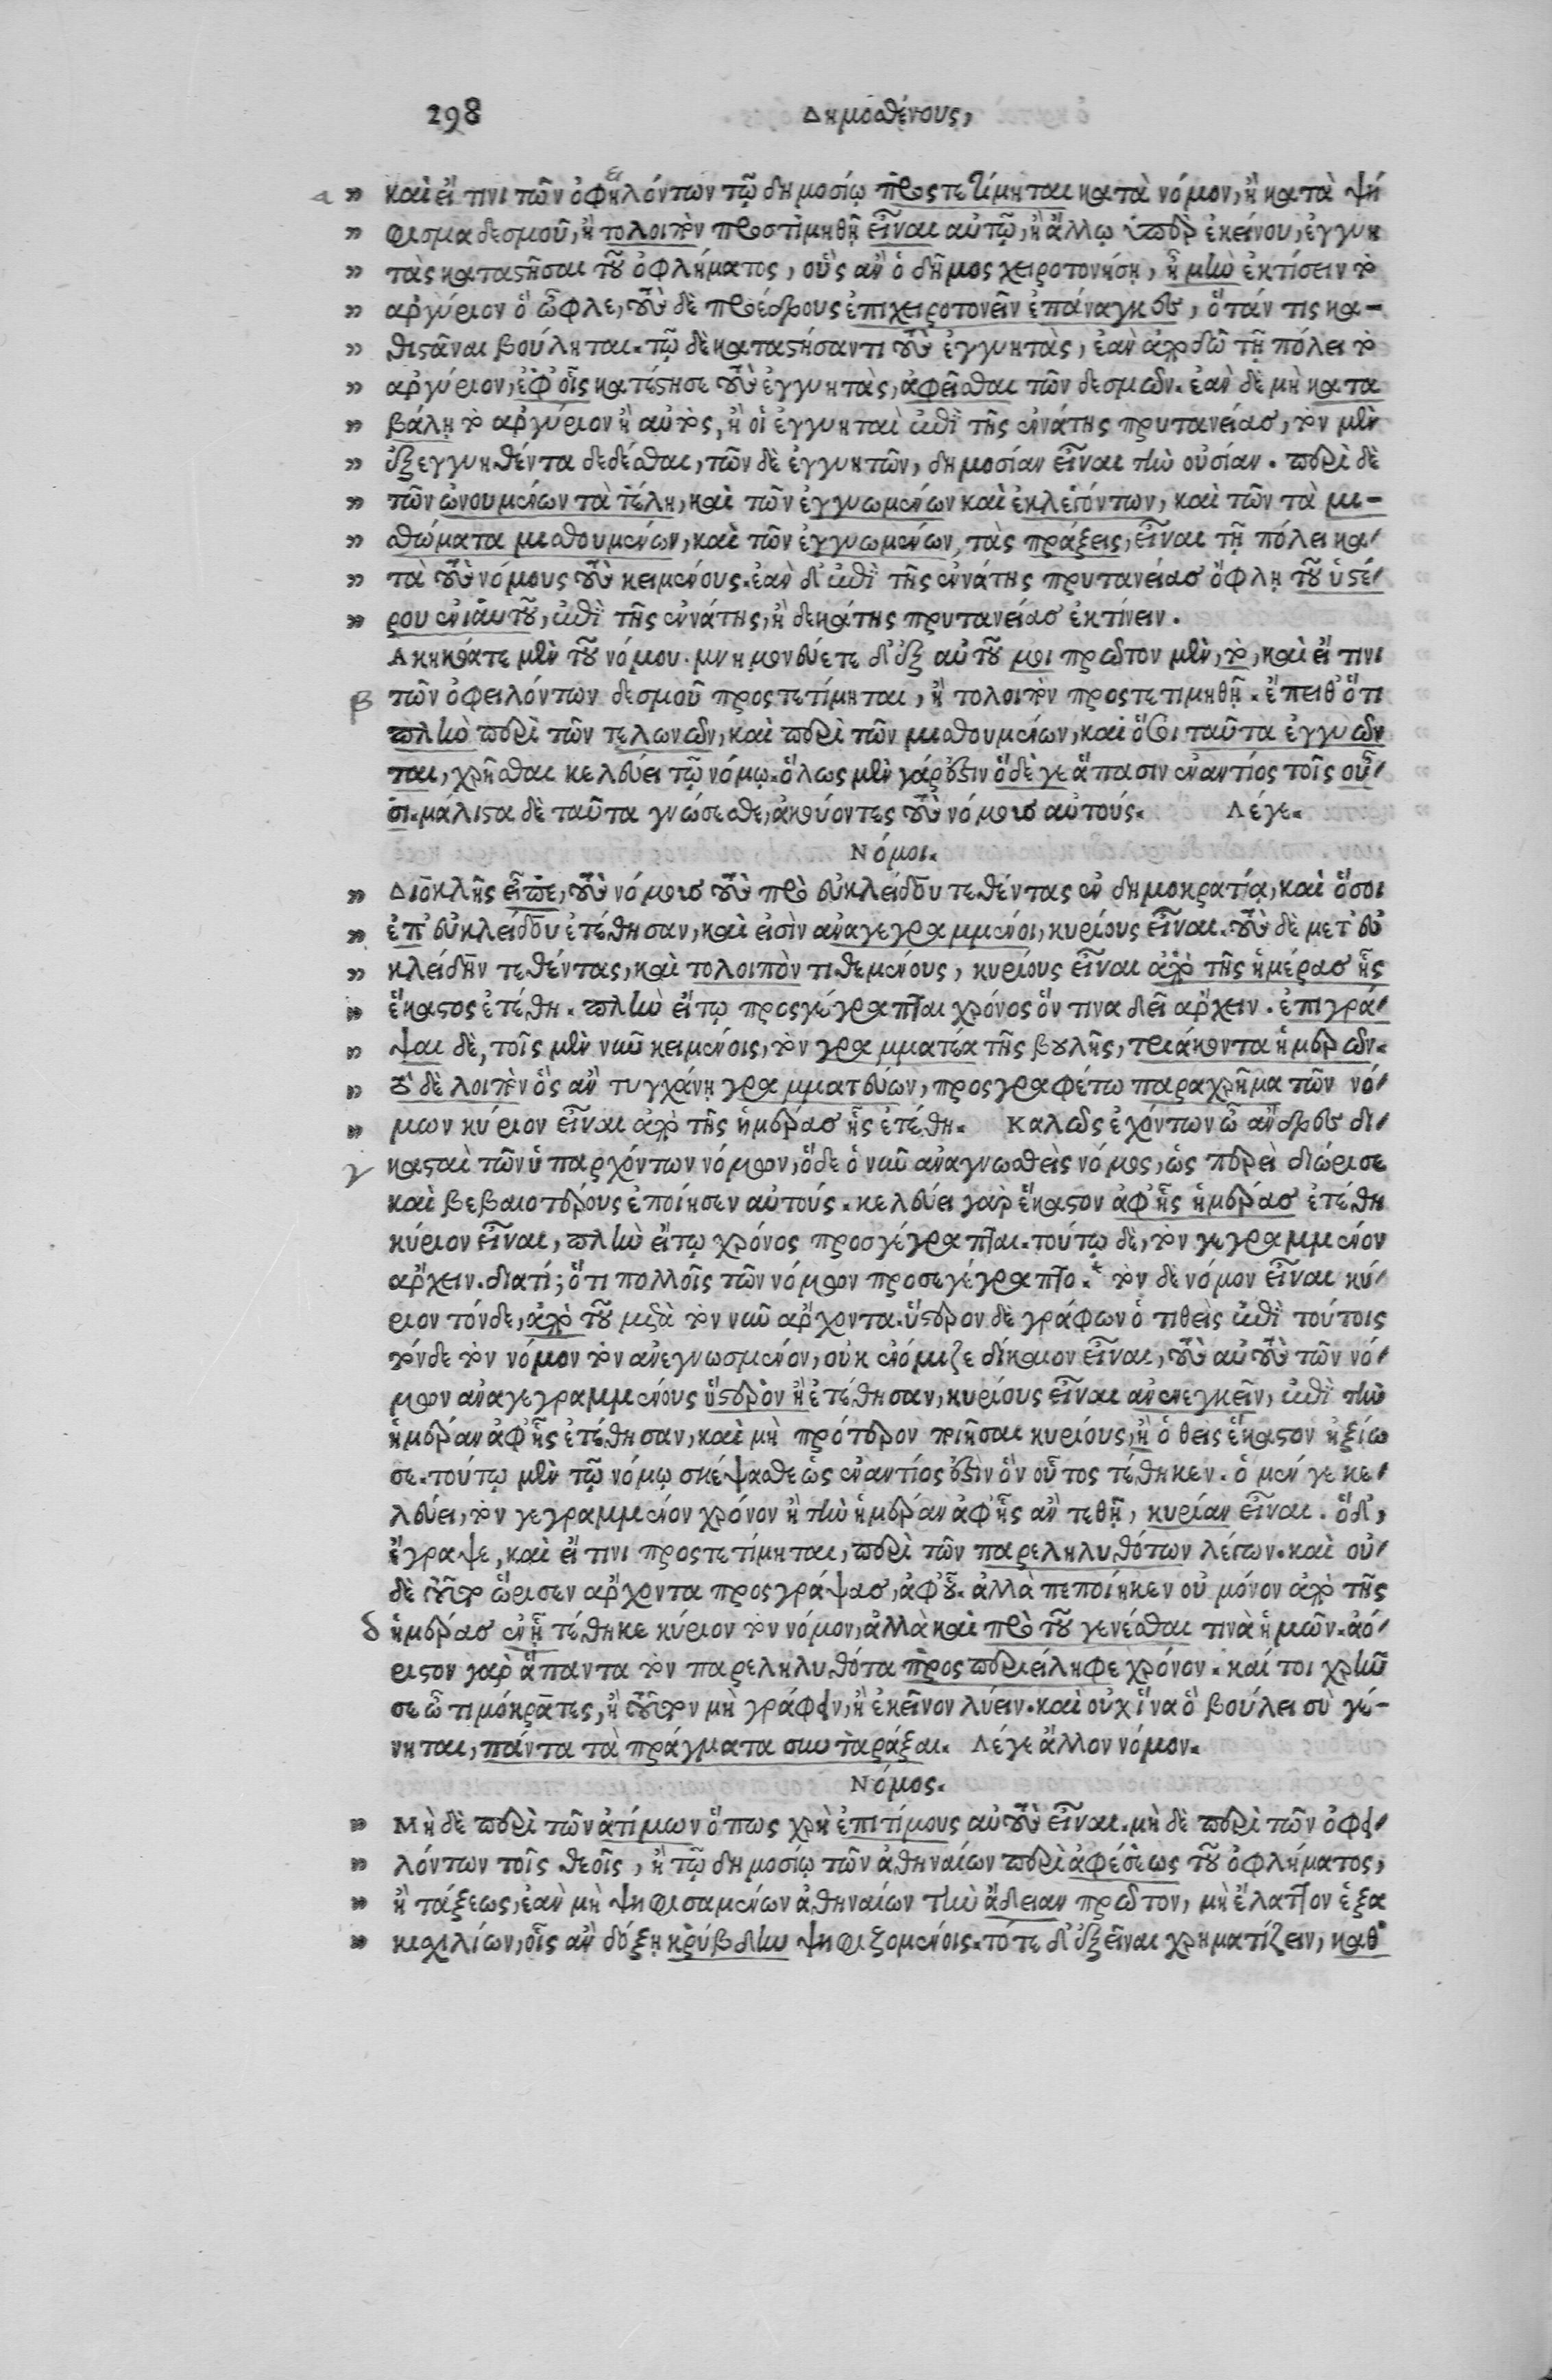 298 Δημοσθένους,
α » καὶ εἴ τινι τῶν ὀφηλόντων τῷ δημοσίῳ προςτετίμηται κατὰ νόμον, ἢ κατὰ ψή
» φισμα δεσμοῦ, ἢ τολοιπὸν προστιμηθῇ εἶναι αὐτῷ, ἢ ἄλλῳ ὑπὲρ ἐκείνου, ἐγγυη
» τὰς καταστῆσαι τοῦ ὀφλήματος, οὓς ἂν ὁ δῆμος χειροτονήσῃ, ἦ μὴν ἐκτίσειν τὸ
» αργύριον ὃ ὦφλε, τοὺς δὲ προέδρους ἐπιχειροτονεῖν ἐπάναγκες, ὅτάν τις κα-
» θιστᾶναι βούληται. τῷ δὲ καταστήσαντι τοὺς ἐγγυητὰς, ἐὰν ἀποδῶ τῇ πόλει τὸ
» αργύριον, ἐφ' οἷς κατέστησε τοὺς ἐγγυητὰς, ἀφεῖσθαι τῶν δεσμῶν. ἐὰν δὲ μὴ κατα
» βάλῃ τὸ αργύριον ἢ αὐτὸς, ἢ οἱ ἐγγυηταὶ ἐπὶ τῆς ἐνάτης πρυτανείας, τὸν μὲν
» ἐξεγγυηθέντα δεδέσθαι, τῶν δὲ ἐγγυητῶν, δημοσίαν εἶναι τὴν οὐσίαν. περὶ δὲ
» τῶν ὠνουμένων τὰ τέλη, καὶ τῶν ἐγγυωμένων καὶ ἐκλεγόντων, καὶ τῶν τὰ μι-
» σθώματα μισθουμένων, καὶ τῶν ἐγγυωμένων, τὰς πράξεις, εἶναι τῇ πόλει κα-
» τὰ τοὺς νόμους τοὺς κειμένους. ἐὰν δ' ἐπὶ τῆς ἐνάτης πρυτανείας ὄφλῃ τοῦ ὑστέ-
» ρου ἐνιαυτοῦ, ἐπὶ τῆς ἐνάτης, ἢ δεκάτης πρυτανείας ἐκτίνειν.
Ακηκόατε μὲν τοῦ νόμου. μνημονεύετε δ' ἐξ αὐτοῦ μοι πρῶτον μὲν, τὸ, καὶ εἴ τινι
β τῶν ὀφειλόντων δεσμοῦ προςτετίμηται, ἢ τολοιπὸν προςτετιμηθῇ. ἔπειθ' ὅτι
πλὴν περὶ τῶν τελωνῶν, καὶ περὶ τῶν μισθουμένων, καὶ ὅσοι ταῦτα ἐγγυῶν
ται, χρῆσθαι κελεύει τῷ νόμῳ. ὅλως μὲν γάρ ἐστιν ὅδε γε ἅπασιν ἐναντίος τοῖς οὖ-
σι. μάλιστα δὲ ταῦτα γνώσεσθε, ἀκούοντες τοὺς νόμους αὐτούς. Λέγε.
Νόμοι.
» Διοκλῆς εἶπε, τοὺς νόμους τοὺς πρὸ εὐκλείδου τεθέντας ἐν δημοκρατίᾳ, καὶ ὅσοι
» ἐπ' εὐκλείδου ἐτέθησαν, καὶ εἰσὶν αναγεγραμμένοι, κυρίους εἶναι. τοὺς δὲ μετ' εὐ
» κλείδην τεθέντας, καὶ τολοιπὸν τιθεμένους, κυρίους εἶναι ἀπὸ τῆς ἡμέρας ἧς
» ἕκαστος ἐτέθη. πλὴν εἴ τῳ προςγέγραπται χρόνος ὅν τινα δεῖ αρχειν. ἐπιγρά-
» ψαι δὲ, τοῖς μὲν νῦν κειμένοις, τὸν γραμματέα τῆς βουλῆς, τριάκοντα ἡμερῶν.
» τὸ δὲ λοιπὸν ὃς ἂν τυγχάνῃ γραμματεύων, προςγραφέτω παραχρῆμα τῶν νό-
» μων κύριον εἶναι ἀπὸ τῆς ἡμέρας ἧς ἐτέθη. Καλῶς ἐχόντων ὦ ἄνδρες δι-
γ κασταὶ τῶν ὑπαρχόντων νόμων, ὅδε ὁ νῦν αναγνωσθεὶς νόμος, ὡς περεὶ διώρισε
καὶ βεβαιοτέρους ἐποίησεν αὐτούς. κελεύει γὰρ ἕκαστον ἀφ' ἧς ἡμέρας ἐτέθη
κύριον εἶναι, πλὴν εἴ τῳ χρόνος προσγέγραπται. τούτῳ δὲ, τὸν γεγραμμένον
αρχειν. διατί; ὅτι πολλοῖς τῶν νόμων προσεγέγραπτο.* τὸν δὲ νόμον εἶναι κύ-
ριον τόνδε, ἀπὸ τοῦ μετὰ τὸν νῦν αρχοντα. ὕστερον δὲ γράφων ὁ τιθεὶς ἐπὶ τούτοις
τόνδε τὸν νόμον τὸν ανεγνωσμένον, οὐκ ἐνόμιζε δίκαιον εἶναι, τοὺς αὐτοὺς τῶν νό-
μων αναγεγραμμένους ὕστερὸν ἢ ἐτέθησαν, κυρίους εἶναι ανενεγκεῖν, ἐπὶ τὴν
ἡμέραν ἀφ' ἧς ἐτέθησαν, καὶ μὴ πρότερον ποιῆσαι κυρίους, ἢ ὁ θεὶς ἕκαστον ἠξίω
σε. τούτῳ μὲν τῷ νόμῳ σκέψασθε ὡς ἐναντίος ἐστὶν ὃν οὗτος τέθηκεν. ὁ μέν γε κε-
λεύει, τὸν γεγραμμένον χρόνον ἢ τὴν ἡμέραν ἀφ' ἧς ἂν τεθῇ, κυρίαν εἶναι. ὅδ',
ἔγραψε, καὶ εἴ τινι προςτετίμηται, περὶ τῶν παρεληλυθότων λέγων. καὶ οὐ-
δὲ τοῦτο ὥρισεν αρχοντα προςγράψας, ἀφ' οὗ. ἀλλὰ πεποίηκεν οὐ μόνον ἀπὸ τῆς
δ ἡμέρας ἐν ᾗ τέθηκε κύριον τὸν νόμον, ἀλλὰ καὶ πρὸ τοῦ γενέσθαι τινὰ ἡμῶν. ἀό-
ριστον γὰρ ἅπαντα τὸν παρεληλυθότα πρὸς περιείληφε χρόνον. καί τοι χρῆν
σε ὦ τιμόκρατες, ἢ τοῦτον μὴ γράφειν, ἢ ἐκεῖνον λύειν. καὶ οὐχ ἵνα ὃ βούλει σὺ γέ-
νηται, πάντα τὰ πράγματα συνταράξαι. Λέγε ἄλλον νόμον.
Νόμος.
» Μὴ δὲ περὶ τῶν ἀτίμων ὅπως χρὴ ἐπιτίμους αὐτοὺς εἶναι. μὴ δὲ περὶ τῶν ὀφει-
» λόντων τοῖς θεοῖς, ἢ τῷ δημοσίῳ τῶν ἀθηναίων περὶ ἀφέσεως τοῦ ὀφλήματος,
» ἢ τάξεως, ἐὰν μὴ ψηφισαμένων ἀθηναίων τὴν ἄδειαν πρῶτον, μὴ ἔλαττον ἑξα
» κισχιλίων, οἷς ἂν δόξῃ κρύβδην ψηφιζομένοις. τότε δ' ἐξεῖναι χρηματίζειν, καθ'